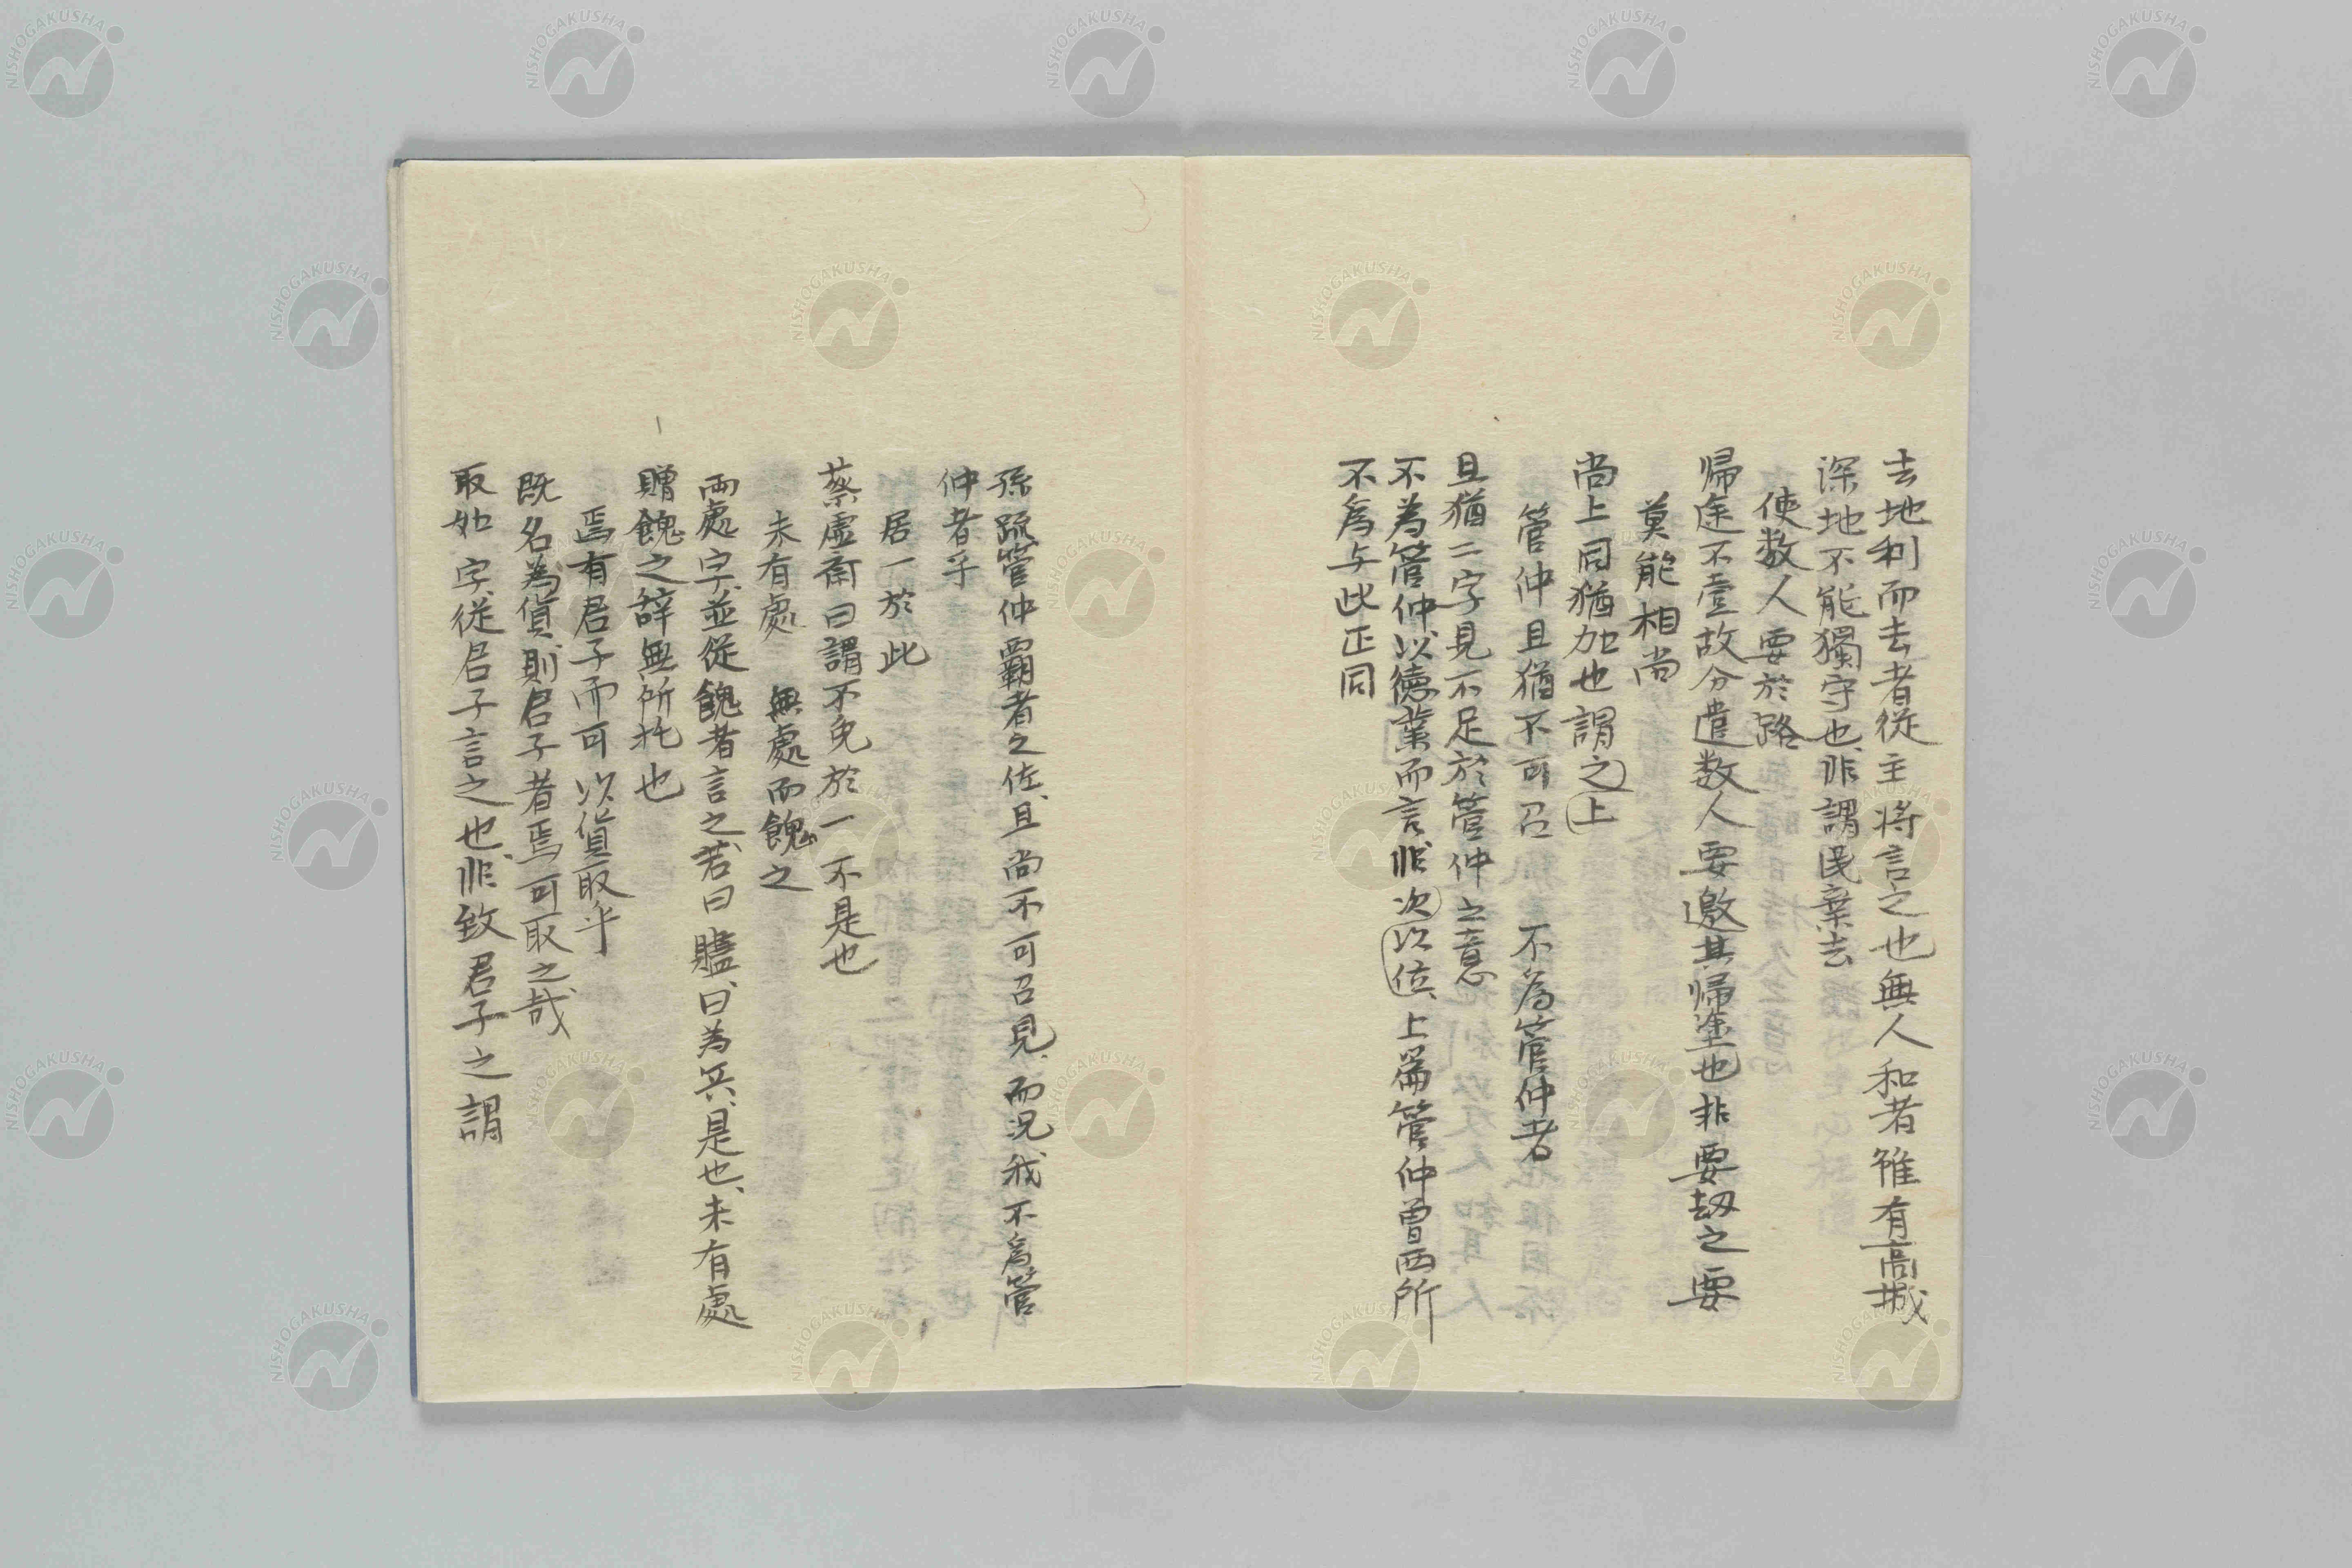 去地利而去者従主将言之也無人和者雖有高城
深地不能獨守也非謂民棄去
使数人要於路
帰途不壹故分遣数人要邀其帰塗也非要劫之要
莫能相尚
尚上同猶加也謂之上
管仲且猶不可召 不為管仲者
且猶二字見不足於管仲之意
不為管仲以徳業而言非次次位、上篇管仲曽西所
不為与此正同
孫疏管仲覇者之佐、且尚不可召見、而況我不為管
仲者乎
居一於此
蔡虚斎曰謂不免於一不是也
未有處 無處而餽之
両處字並従餽者言之、若曰贐、曰為兵、是也、未有處
贈餽之辞無所托也
焉有君子而可以貨取乎
既名為貨、則君子者焉可取之哉
取如字、従君子言之也、非致君子之謂
NISHOGAKUSHA